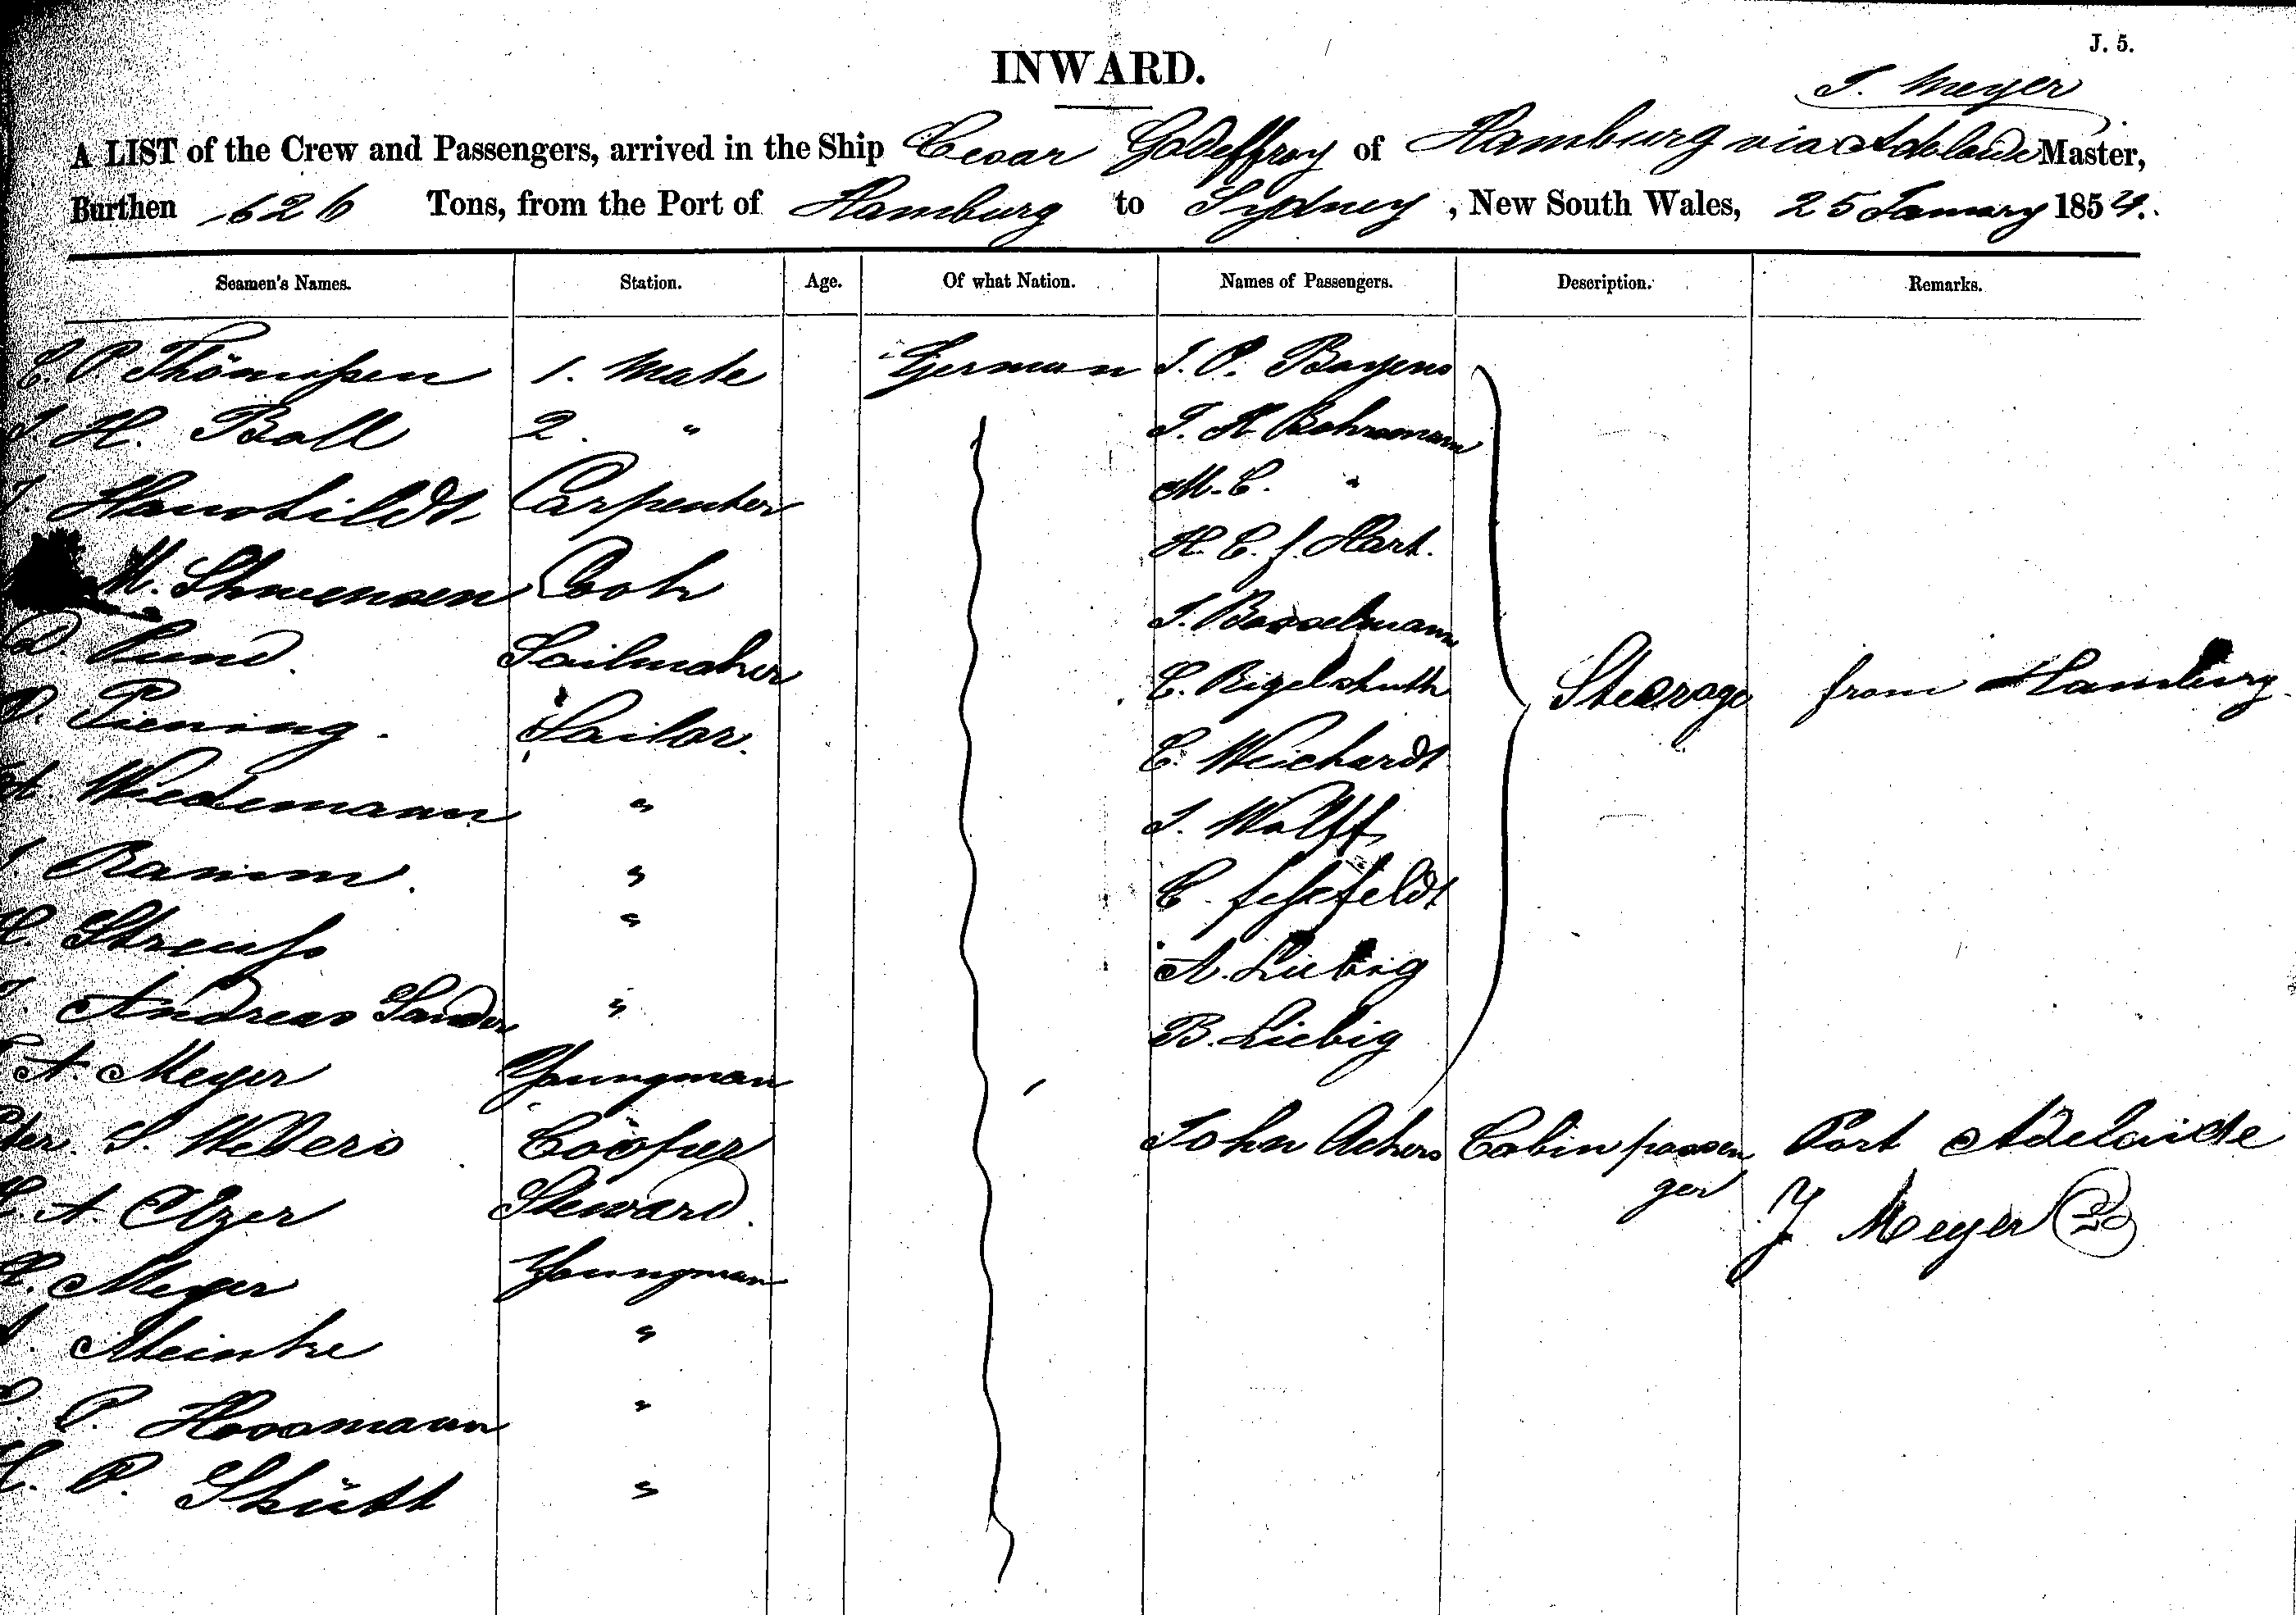 J. 5.
INWARD.
J. Meyer
A LIST of the Crew and Passengers, arrived in the Ship Cesar Godeffroy of Hamburg via Adelaide Master,
Burthen 626 Tons, from the Port of Hamburg to Sydney, New South Wales, 25 January 1854.
Seamen's Names. Station. Age. Of what Nation. Names of Passengers. Description. Remarks.
C. P. Thömssen 1. Mate German J. P. Boysens
J. H. Ball 2. " J. H. Bohrsmann
J. Haushildt Carpenter M. C. "
M. Shwensen Cook H. C. J. Hart.
D. Pund. Sailmaker J. Bosselmann
D. Piening. Sailor. C. Rigelshuth Stearage from Hamburg
H. Wiedemann " C. Weichardt
Ramm. " J. Wolff
H. Streuss " C. Fehsfeldt
J. Andreas Sander " A. Liebig
B. Liebig
A. Meyer Youngman
J. Wellers Cooper John Achers Cabin passenger Port Adelaide
A. Elzer Steward. J Meyer
H. Meyer Youngman
Meinke "
P. Hossmann "
H. P. Shütt "